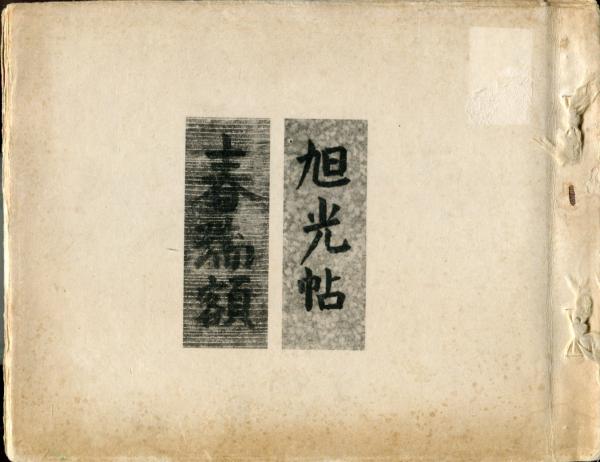 旭光帖
春瑞額